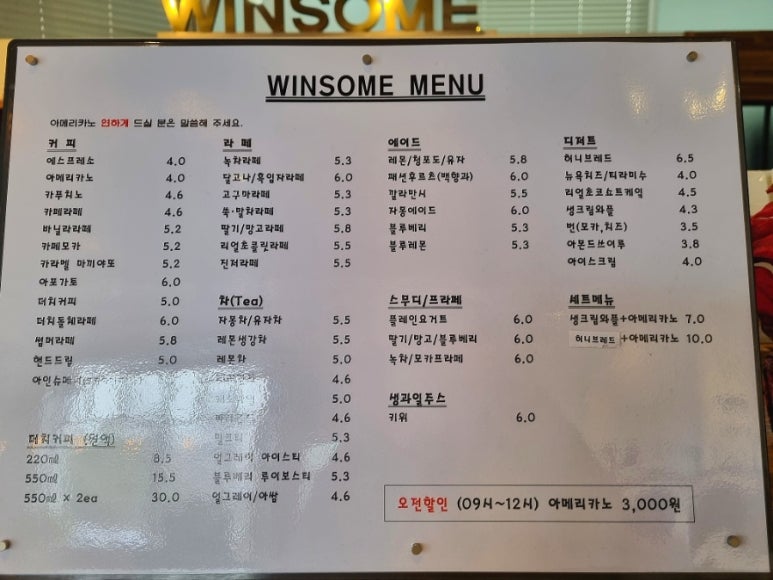 WINSOME
WINSOME MENU
아메리카노 연하게 드실 분은 말씀해 주세요.
커 피
에스프레소 4.0
아메리카노 4.0
카푸치노 4.6
카페라떼 4.6
바닐라라떼 5.2
카페모카 5.2
카라멜 마끼야또 5.2
아포가토 6.0
더치커피 5.0
더치돌체라떼 6.0
썸머라떼 5.8
핸드드립 5.0
아인슈페
더치커피 (원액)
220㎖ 8.5
550㎖ 15.5
550㎖ × 2ea 30.0
라 떼
녹차라떼 5.3
달고나/흑임자라떼 6.0
고구마라떼 5.3
쑥·말차라떼 5.3
딸기/망고라떼 5.8
리얼초콜릿라떼 5.5
진저라떼 5.5
차(Tea)
자몽차/유자차 5.5
레몬생강차 5.5
레몬차 5.0
4.6
5.0
4.6
밀크티 5.3
얼그레이 아이스티 4.6
블루베리 루이보스티 5.3
얼그레이/아쌈 4.6
에이드
레몬/청포도/유자 5.8
패션후르츠(백향과) 6.0
깔라만시 5.5
자몽에이드 6.0
블루베리 5.3
블루레몬 5.3
스무디/프라페
플레인요거트 6.0
딸기/망고/블루베리 6.0
녹차/모카프라페 6.0
생과일주스
키위 6.0
디저트
허니브레드 6.5
뉴욕치즈/티라미수 4.0
리얼초코쇼트케잌 4.5
생크림와플 4.3
번(모카,치즈) 3.5
아몬드쓰이루 3.8
아이스크림 4.0
세트메뉴
생크림와플+아메리카노 7.0
허니브레드+아메리카노 10.0
오전할인 (09시~12시) 아메리카노 3,000원